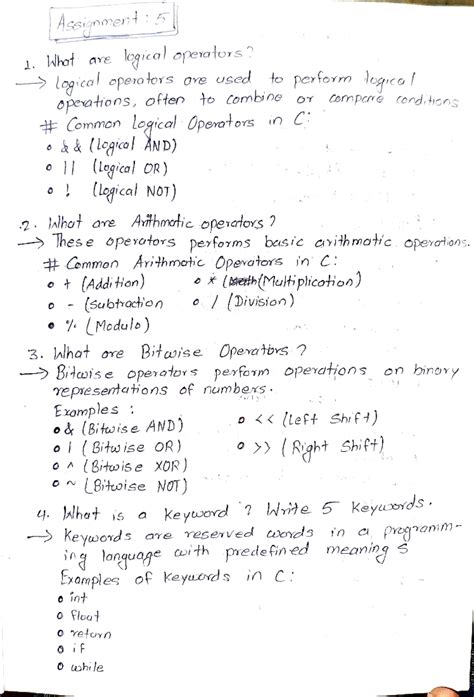 Assignment : 5
1. What are logical operators?
→ Logical operators are used to perform logical
operations, often to combine or compare conditions
# Common Logical Operators in C:
• && (Logical AND)
• || (Logical OR)
• ! (Logical NOT)
2. What are Arithmatic operators?
→ These operators performs basic arithmatic operations.
# Common Arithmatic Operators in C:
• + (Addition) • * (Multiplication)
• - (Subtraction • / (Division)
• % (Modulo)
3. What are Bitwise Operators ?
→ Bitwise operators perform operations on binary
representations of numbers.
Examples :
• & (Bitwise AND) • << (Left Shift)
• | (Bitwise OR) • >> (Right Shift)
• ^ (Bitwise XOR)
• ~ (Bitwise NOT)
4. What is a Keyword ? Write 5 Keywords.
→ Keywords are reserved words in a programm-
ing language with predefined meaning s
Examples of Keywords in C:
• int
• float
• return
• if
• while